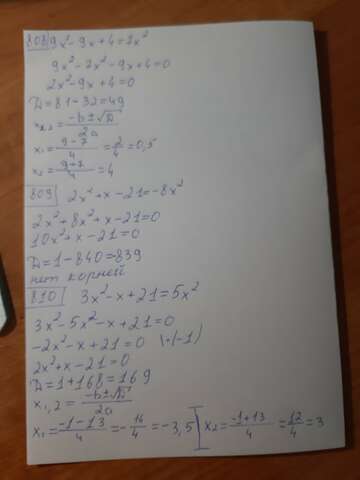 808 9x²-9x+4=7x²
9x²-7x²-9x+4=0
2x²-9x+4=0
D=81-32=49
x₁,₂=(-b±√D)/2a
x₁=(9-7)/4=2/4=0,5
x₂=(9+7)/4=4
809 2x²+x-21=-8x²
2x²+8x²+x-21=0
10x²+x-21=0
D=1-840=839
нет корней
810 3x²-x+21=5x²
3x²-5x²-x+21=0
-2x²-x+21=0 |·(-1)
2x²+x-21=0
D=1+168=169
x₁,₂=(-b±√D)/2a
x₁=(-1-13)/4=-14/4=-3,5 x₂=(-1+13)/4=12/4=3